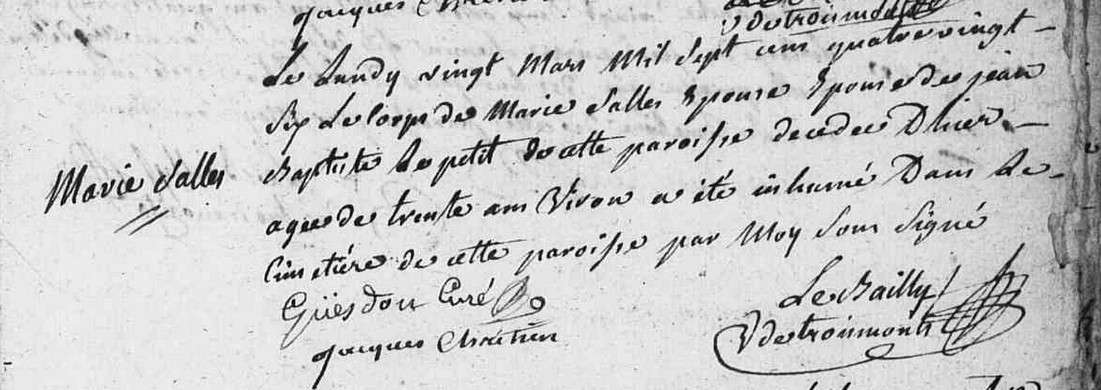 jacques Chretien
v de troismonts
Le Lundy vingt Mars Mil Sept cens quatre vingt
Six Le Corps de Marie Salles Epouse Epouse de jean
Baptiste Le petit de cette paroisse decedee D'hier
Marie Salles
agee de trente ans Viron a été inhumé Dans Le
Cimetiére de cette paroisse par Moy Sous Signé
Guesdon Curé
Le Bailly
jacques Chretien
V de troismonts